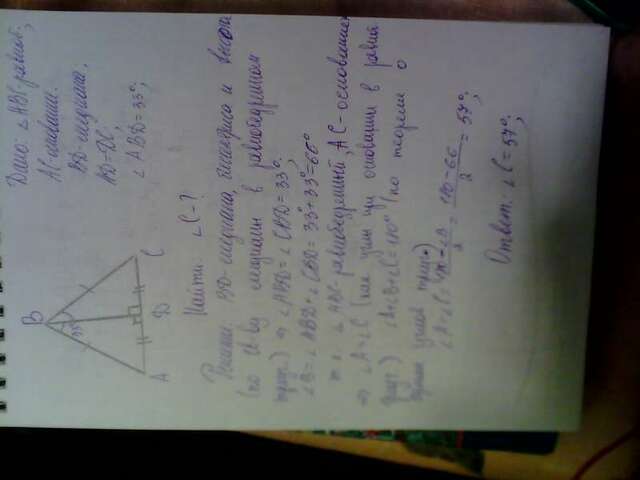 Дано: ∠ABC-равноб.;
AC-основание.
BD-медиана.
AD=DC;
∠ABD=33°;
B
33°
A
D
C
Найти: ∠C-?
Решение: BD-медиана, биссектриса и высота
(по св-ву медианы в равнобедренном
треуг.) ⇒ ∠ABD=∠CBD=33°;
∠B=∠ABD+∠CBD=33°+33°=66°
т.к. ∠ABC-равнобедренный, AC-основание
⇒ ∠A=∠C (как углы при основании в равноб
треуг.) ∠A+∠B+∠C=180° (по теореме о
сумме углов треуг.)
∠A=∠C= -∠B/2 = 180-66/2 = 57°;
Ответ: ∠C=57°;